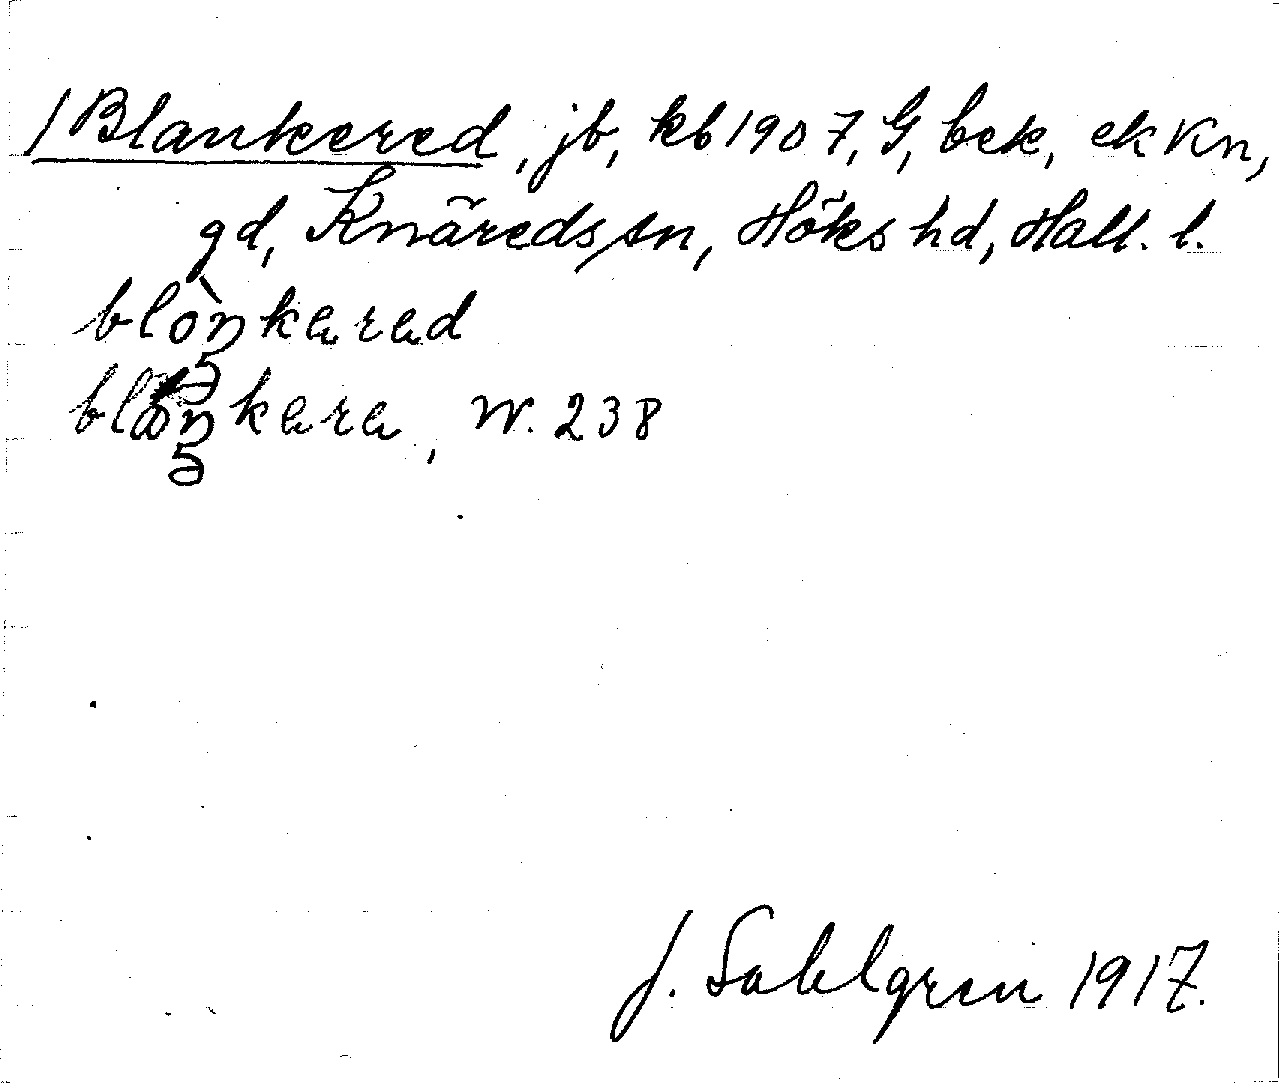 /Blankered, jb, kb 1907, G, bek, ek Kn,
gd, Knäreds sn, Höks hd, Hall. l.
blòŋkarad
blòŋkara, W. 238
J. Sahlgren 1917.